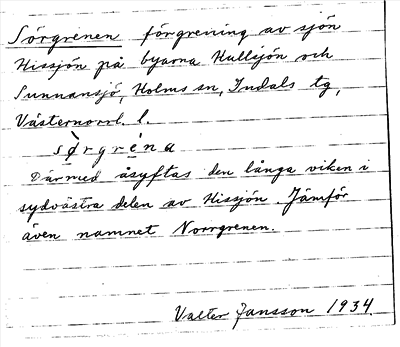 Sörgrenen förgrening av sjön
Hissjön på byarna Kullsjön och
Sunnansjö, Holms sn, Indals tg,
Västernorrl. l.
sø̀rgré̱na
Därmed åsyftas den långa viken i
sydvästra delen av Hissjön. Jämför
även namnet Norrgrenen.
Valter Jansson 1934.